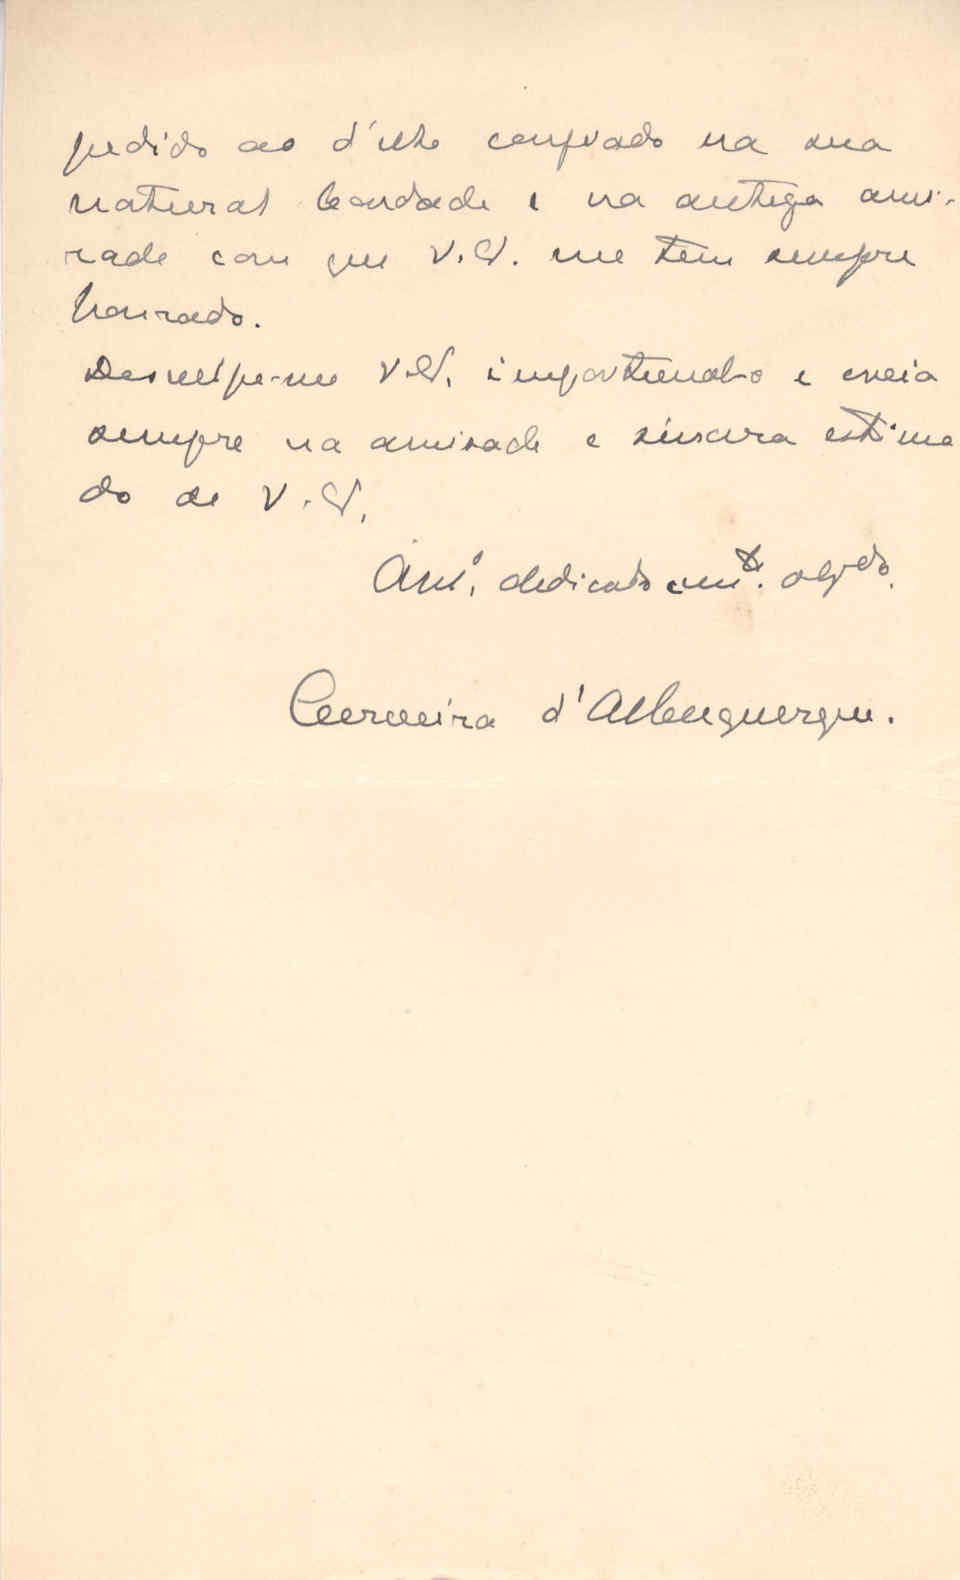 pedido ao d'elle confiado na sua
natural bondade e na antiga ami-
zade com que V. Ex. me tem sempre
honrado.
Desculpe-me V. Ex. importunal-o e creia
sempre na amisade e sincera estima
do de V. Ex.
Am.º dedicado e mt.º obgdo.
Cerveira d'Albuquerque.